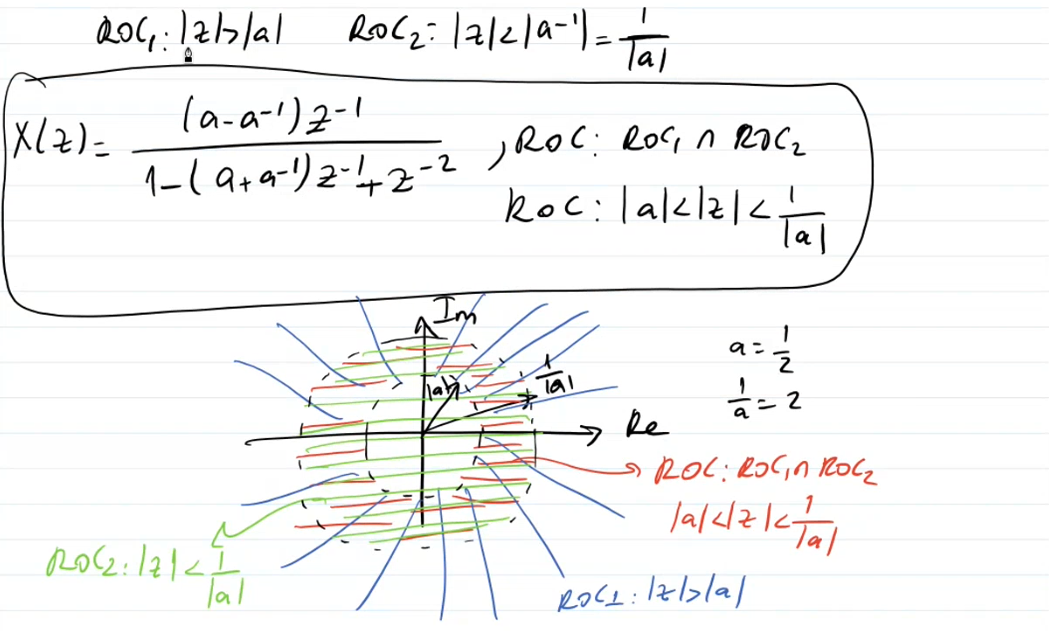 ROC₁: |z|>|a| ROC₂: |z|<|a⁻¹|=1/|a|
X(z)= (a-a⁻¹)z⁻¹ / 1-(a+a⁻¹)z⁻¹+z⁻² , ROC: ROC₁ ∩ ROC₂
ROC: |a|<|z|<1/|a|
Im
|a|
1/|a|
a=1/2
1/a=2
Re
ROC: ROC₁ ∩ ROC₂
|a|<|z|<1/|a|
ROC₂: |z|<1/|a|
ROC1: |z|>|a|